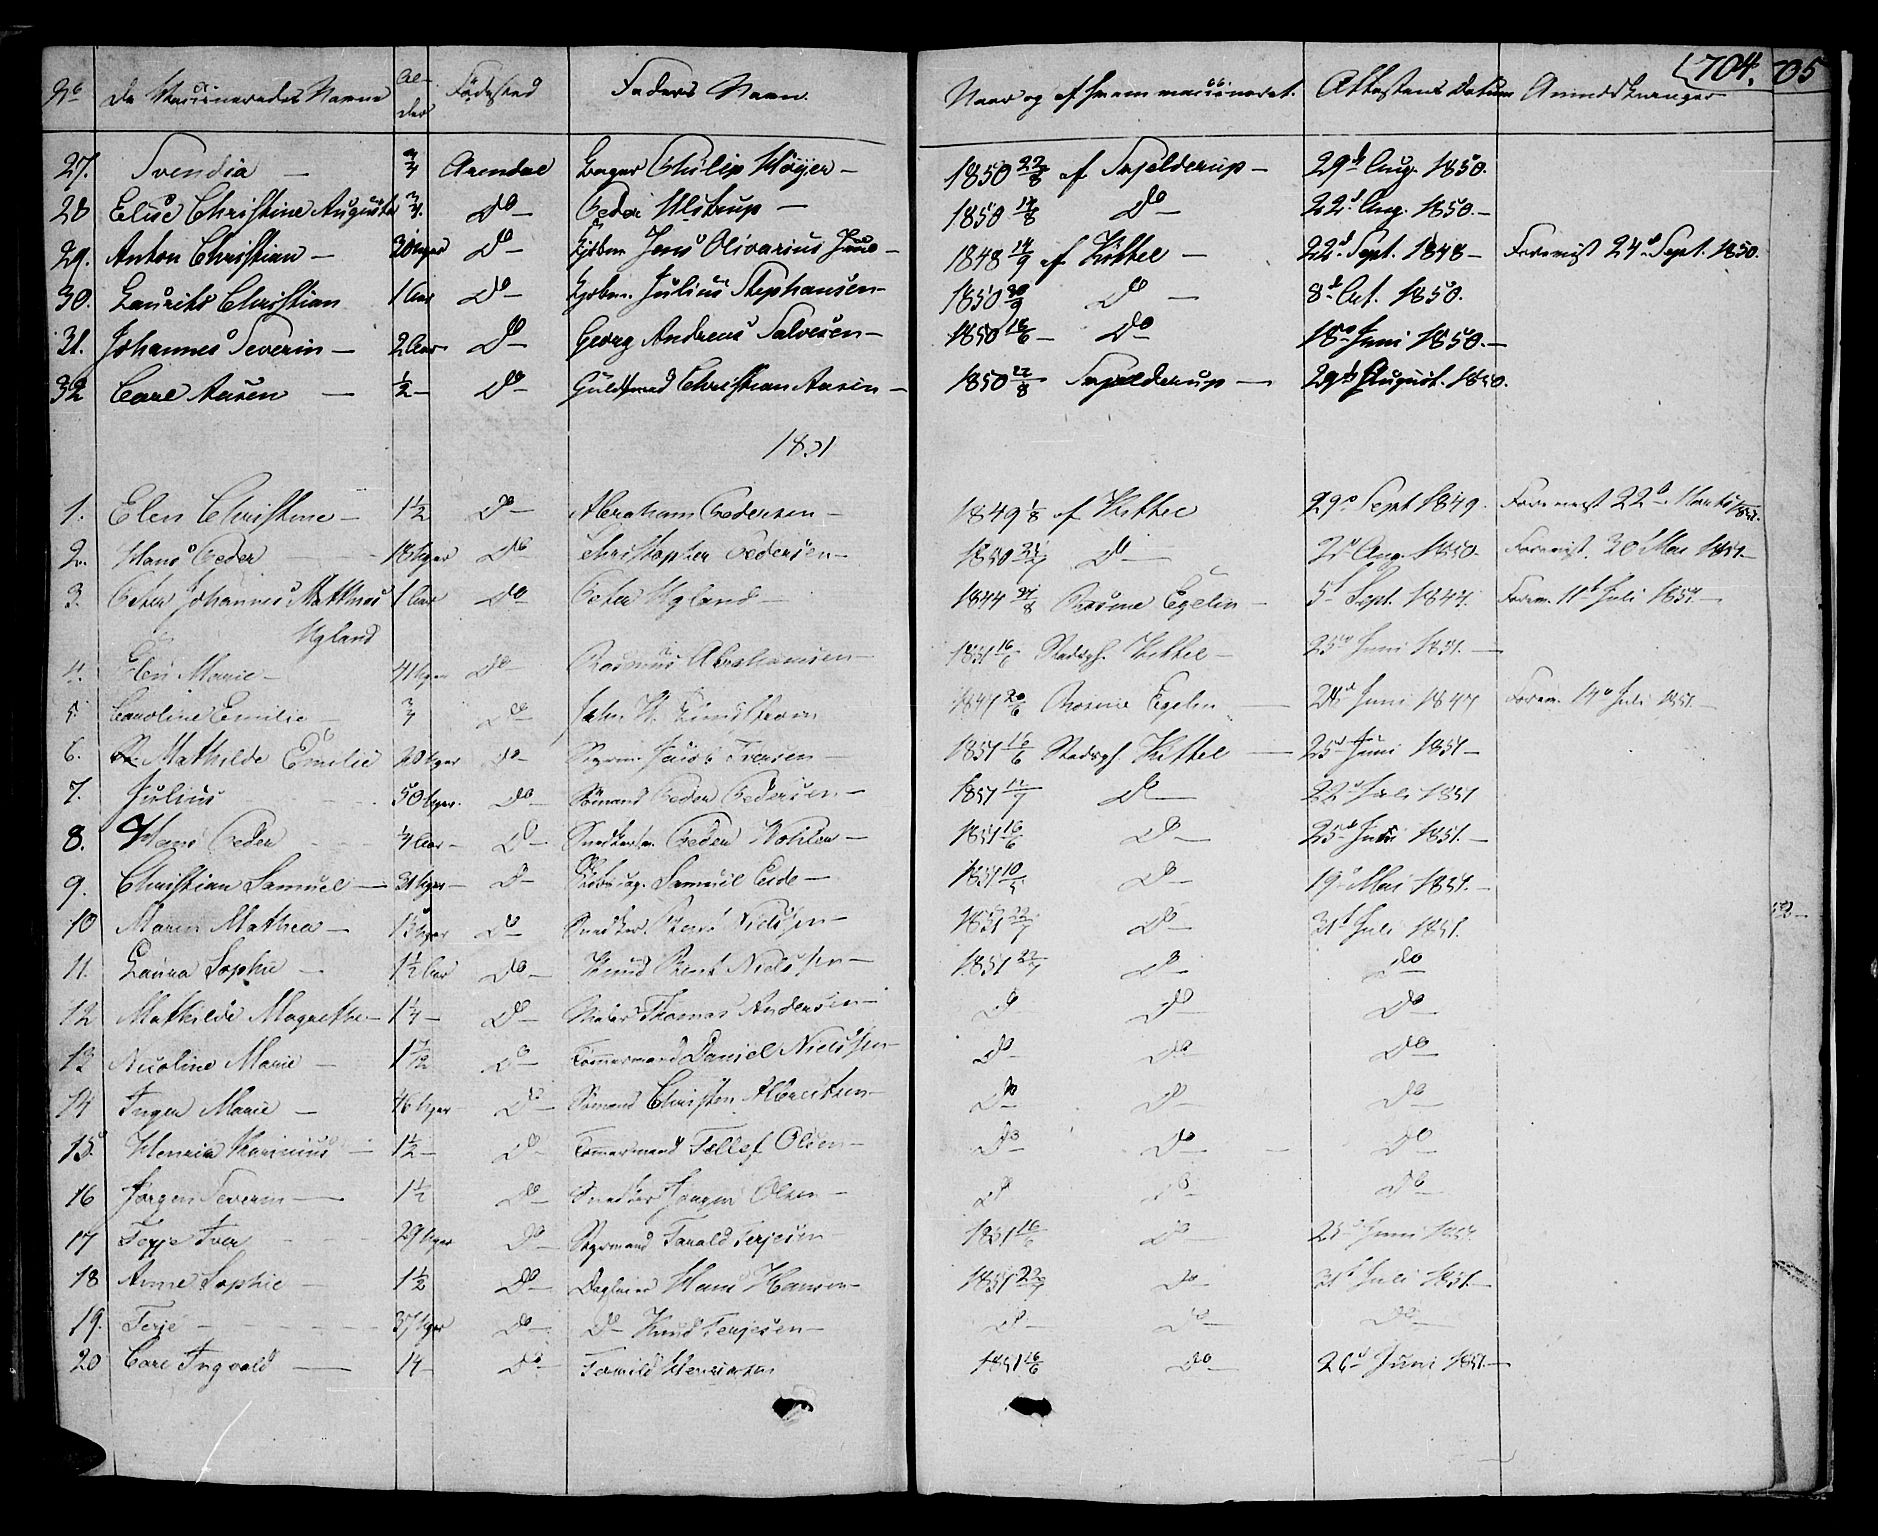 704. 05
No De Vaccineredes Navne Al-der Födested Faders Navn. Naar og af hvem vaccineret. Attestens Datum Anmærkninger
27. Svendia — 3/4 Arendal Philip Höyer — 1850 22/8 af Tvejelderup — 29d Aug. 1850.
28 Elise Christine Augusta 3/4. Do — Peder Ulstrup — 1850 14/8 Do — 22d Aug. 1850. —
29. Anton Christian — 30 Uger Do — Kjöbm Jens Olivarius — 1848 14/9 af Kittel — 22d Sept. 1848 — Forevist 24d Sept. 1850.
30. Laurits Christian 1 Aar Do — Kjöbm. Julius Stephansen — 1850 30/9 Do — 8d Oct. 1850.
31. Johannes Severin — 2 Aar Do — Georg Andreas Salvesen — 1850 16/6 — Do 18 Juni 1850. —
32 Carl Aasen — 1/2 — Do Guldsmed Christian Aasen — 1850 22/8 — 29d August. 1850.
1851
1. Elen Christine — 1 1/2 Do — Abraham Pedersen — 1849 1/8 af Kittel 29 Sept 1849. Forevist 22d Marts 1851.
2. Hans Peder 18 Uger Do — Christopher Pedersen — 1850 Do — Aug. 1850. Forevist. 30 Mai 1851 —
3. Peter Johannes Matthias 1 Aar Do — Peter Ugland — 1844 /8 Rosine Egelin — 5d Sept. 1844. Forev. 11d Juli 1851. —
Ugland
4. Elen Marie — 41 Uger Do — Rasmus Abrahamsen — 1851 16/6 Stadsph. Kittel — 25 Juni 1851. —
5 Caroline Emilie — 3/4 Do — John 1847 20/6 Rosine Egelin — 28d Juni 1847 Forev. 14d Juli 1851. —
6. Mathilde Emilie 20 Uger Do — Styrm. Jacob Iversen — 1851 16/6 Stadsph Kittel — 25d Juni 1851 —
7. Julius 50 Uger. Do — Sömand Peder Pedersen — 1851 /7 Do — 22d Juli 1851
8. Hans Peder 1/4 Aar — Do — Snedkerm. Peder — 1851 16/6 Do — 25d Juni 1851. —
9. Christian Samuel — 31 Uger — Do — Samuel Eide — 1851 10/5 Do — 19 Mai 1851. —
10 Maren Mathea — 13 Uger Do — Snedker. Nielssen — 1851 22/7 Do — 31d Juli 1851.
11. Laura Sophie — 1 1/2 Aar Do — Knud Nielssen — 1851 22/7 Do — Do
12 Mathilde Magrethe — 1 1/4 — Do — Thomas Andersen — Do Do — Do —
13 Nicoline Marie — 1 7/12 Do — Tömmermand Daniel Nielssen — Do — Do — Do —
14 Inger Marie — 46 Uger Do — Sömand Christen Albretsen — Do — Do — Do —
15. Henrik Marinius — 1 1/2 — Do — Tömmermand Tellef Olsen — Do — Do — Do —
16 Jörgen Severin — 1 1/2 Do — Snedker Jörgen Olsen — Do Do — Do —
17 Iver 29 Uger Do — Styrmand Tarald Terjesen — 1851 16/6 Do — 25 Juni 1851.
18 Anne Sophie — 1 1/2 Do — Dagleier Hans Hansen — 1851 22/7 Do — 31d Juli 1851. —
19. Terje — 37 Uger Do — Do — Knud Terjesen — Do — Do — Do —
20 Carl Ingvald — 14 — Do — 1851 16/6 Do — 26d Juni 1851. —